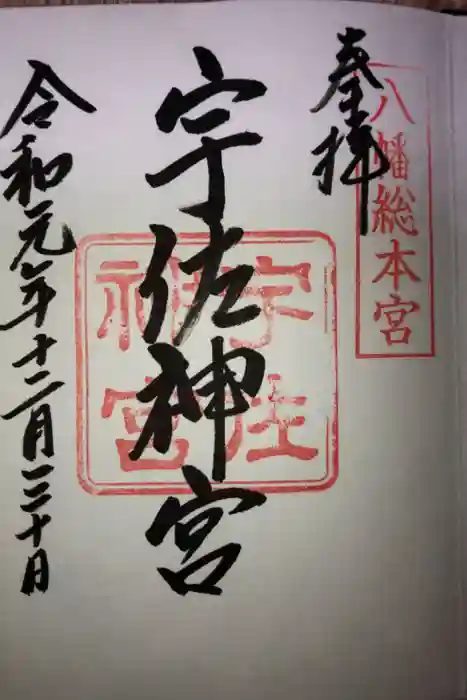 八幡総本宮
奉拝
宇佐神宮
宇佐
神宮
令和元年十二月三十日